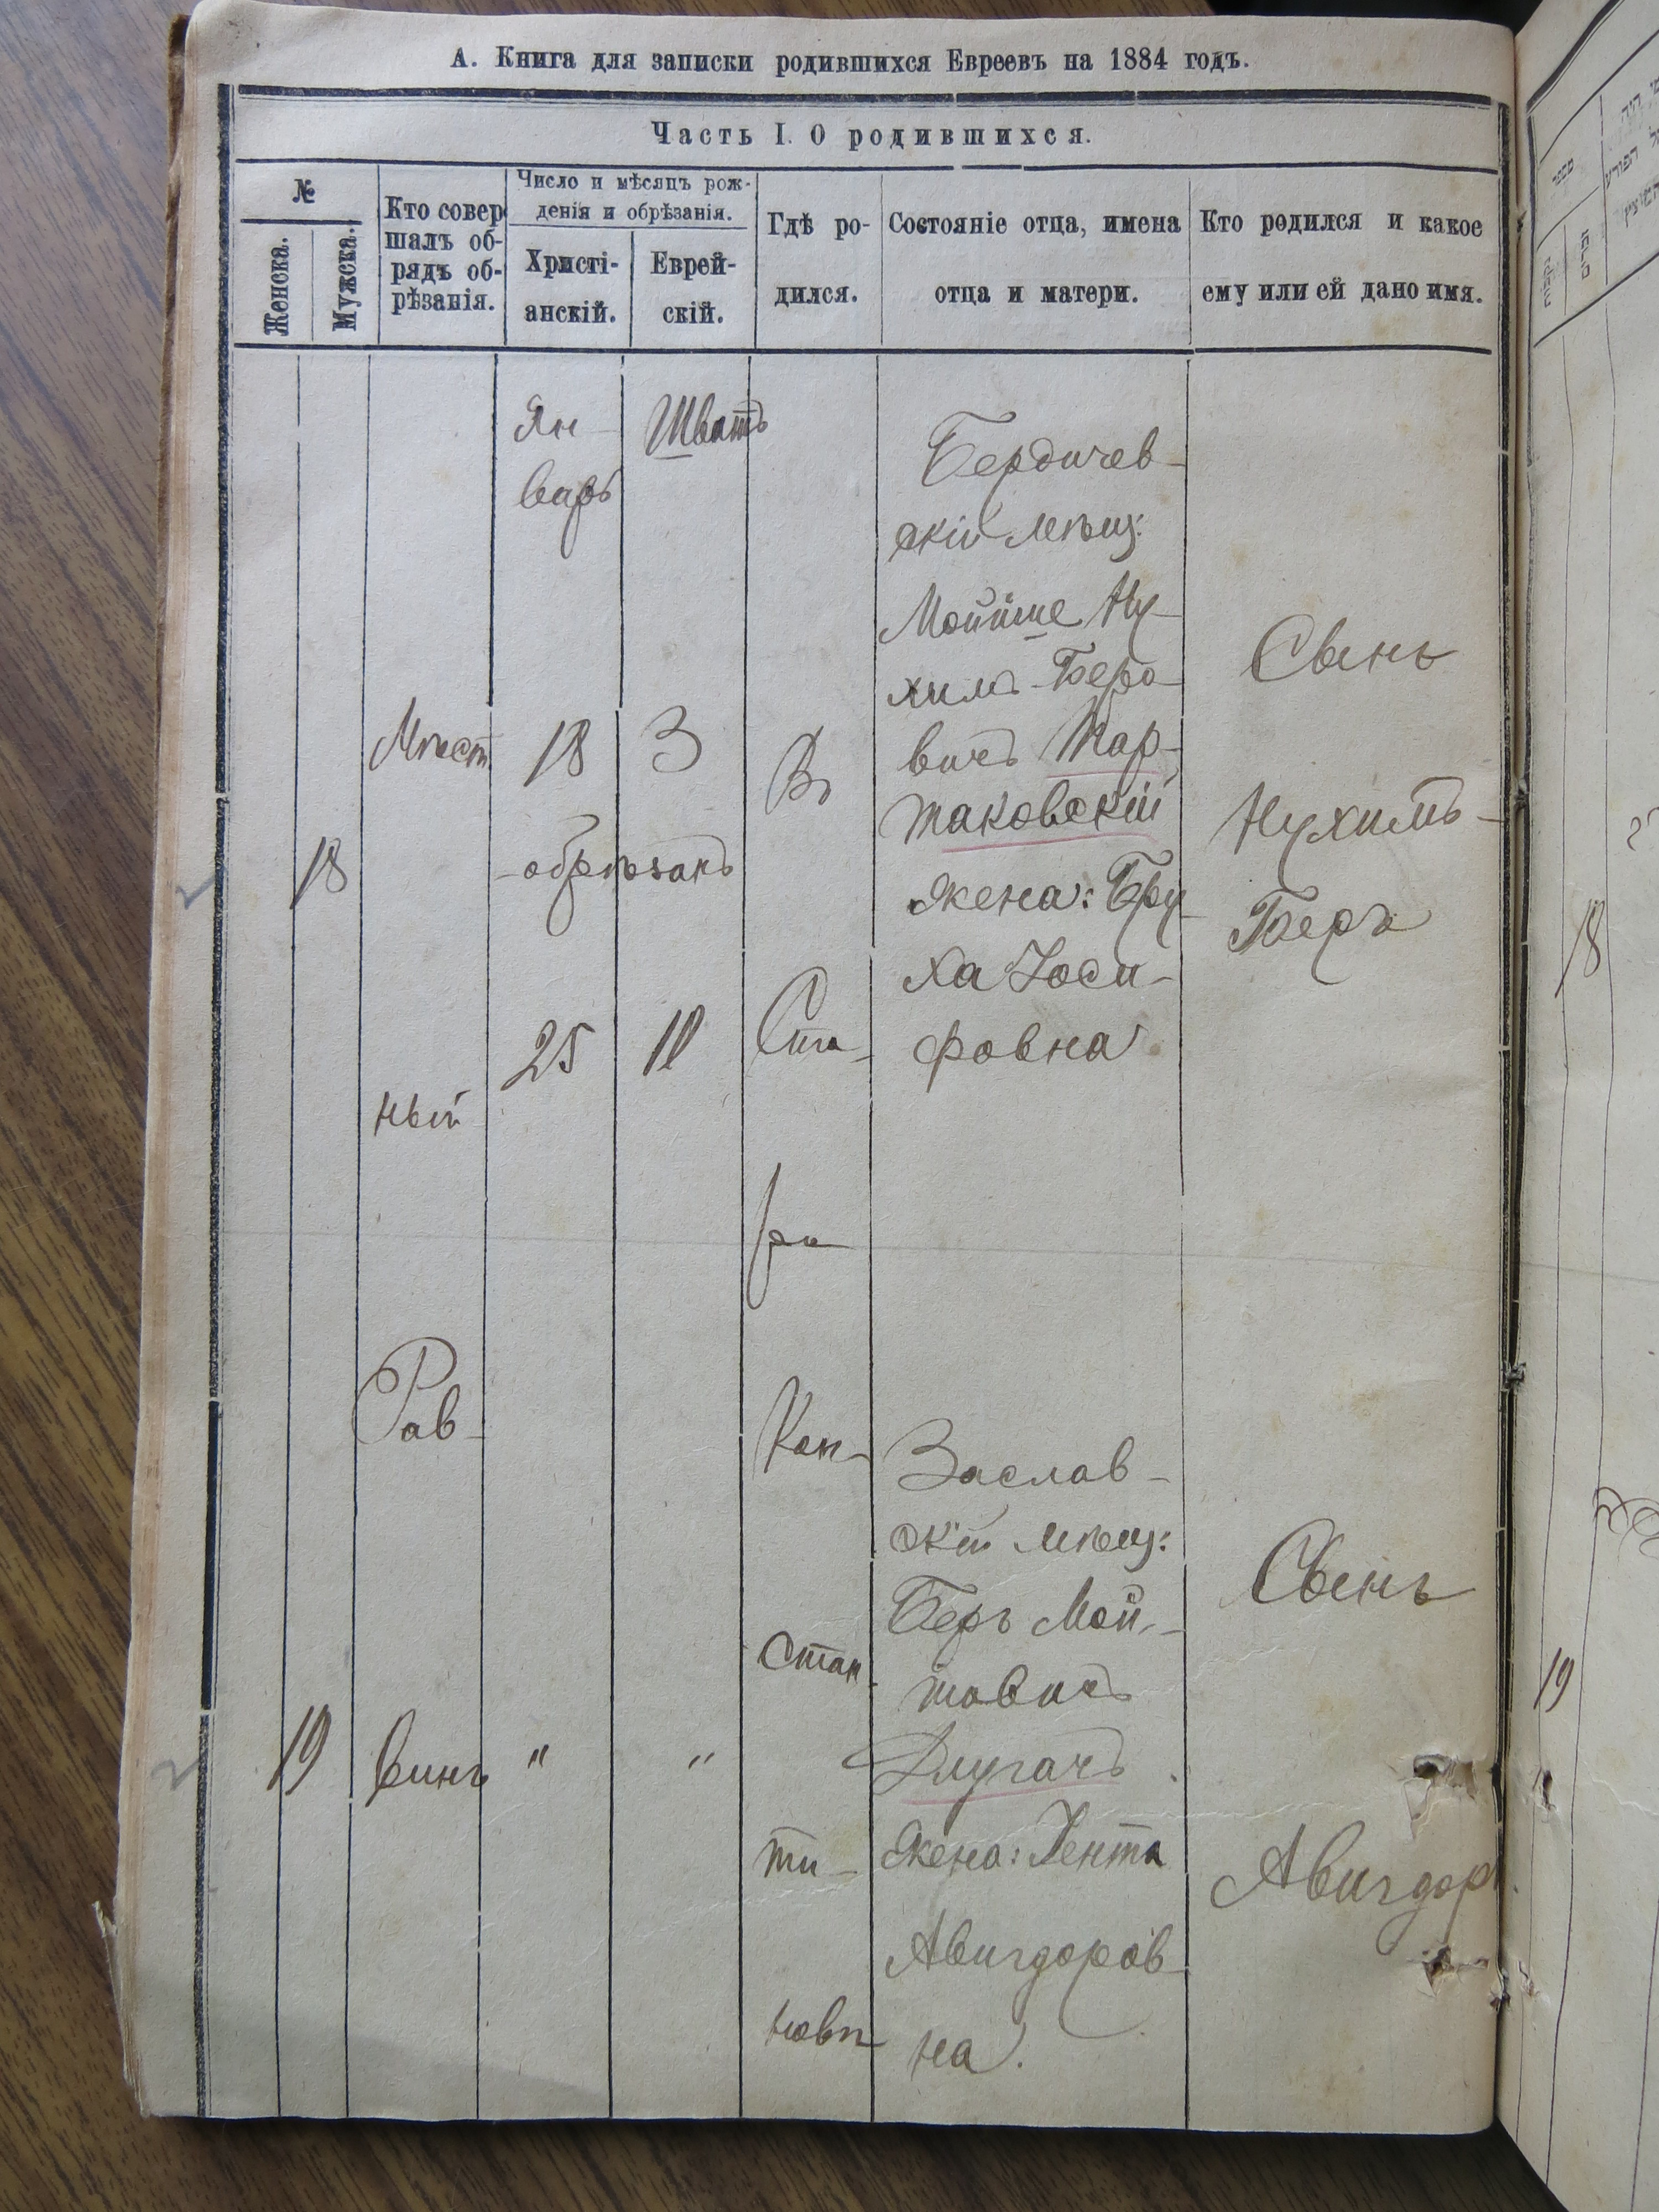 А. Книга для записки родившихся Евреевъ на 1884 годъ.
Часть I. О родившихся.
№
Женска.
Мужска.
Кто совер
шалъ об-
рядъ об-
рѣзанія.
Число и мѣсяцъ рож-
денія и обрѣзанія.
Христі-
анскій.
Еврей-
скій.
Гдѣ ро-
дился.
Состояніе отца, имена
отца и матери.
Кто родился и какое
ему или ей дано имя.
18
Мѣст
ный
Рав-
винъ
Ян-
варь
18
обрѣзанъ
25
Шватъ
3
10
Въ
Ста-
ро
Кон-
стан-
ти-
новѣ
Бердичев-
скій мѣщ:
Мойше Ну-
химъ-Беро-
вичъ Пар-
таковскій
Жена: Бру-
ха Іоси-
фовна
Сынъ
Нухимъ-
Беръ
19
"
"
Заслав-
скій мѣщ:
Беръ Мой-
шовичъ
Длугачъ
Жена: Ента
Авигдоров-
на.
Сынъ
Авигдоръ
18
19